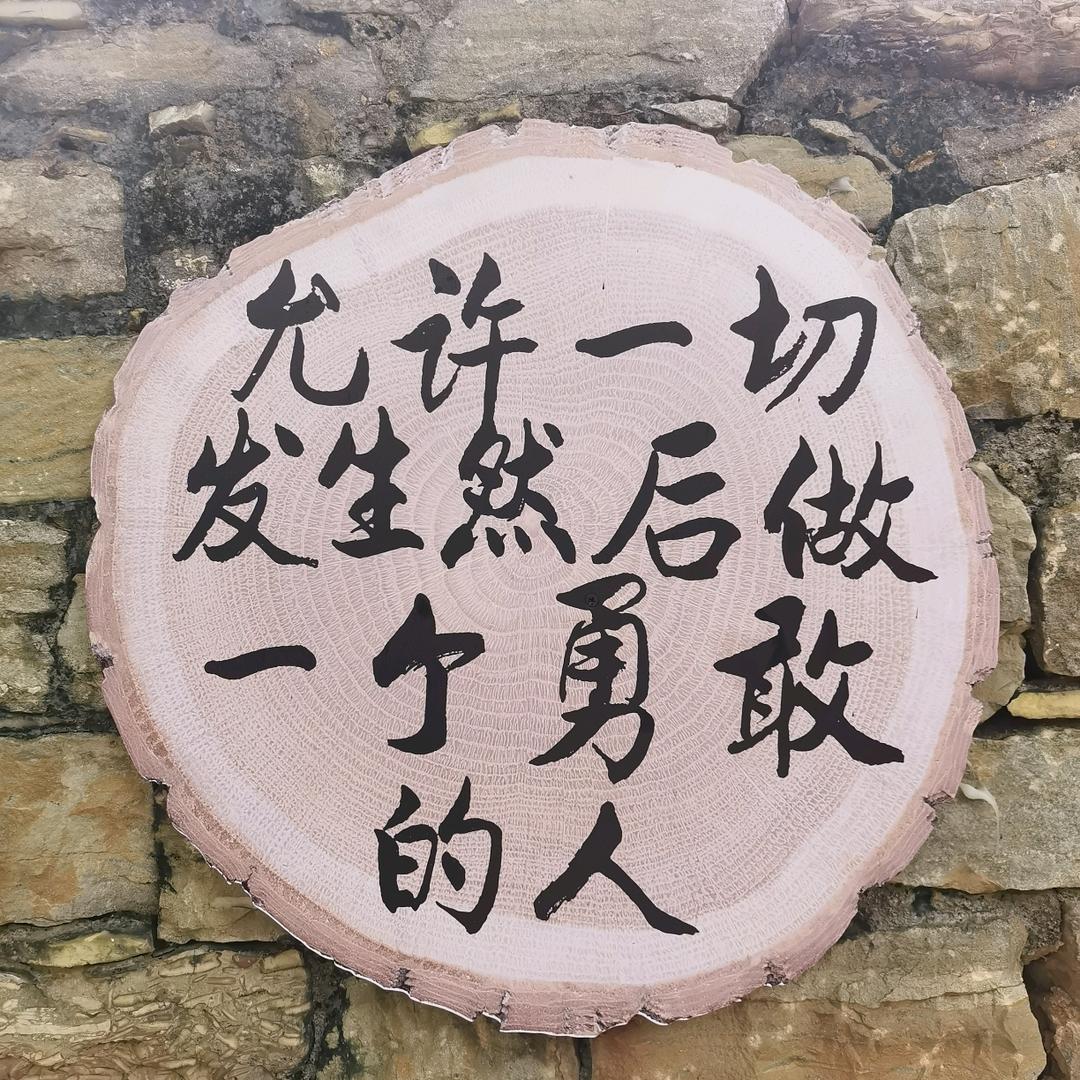 允许一切
发生然后做
一个勇敢
的人